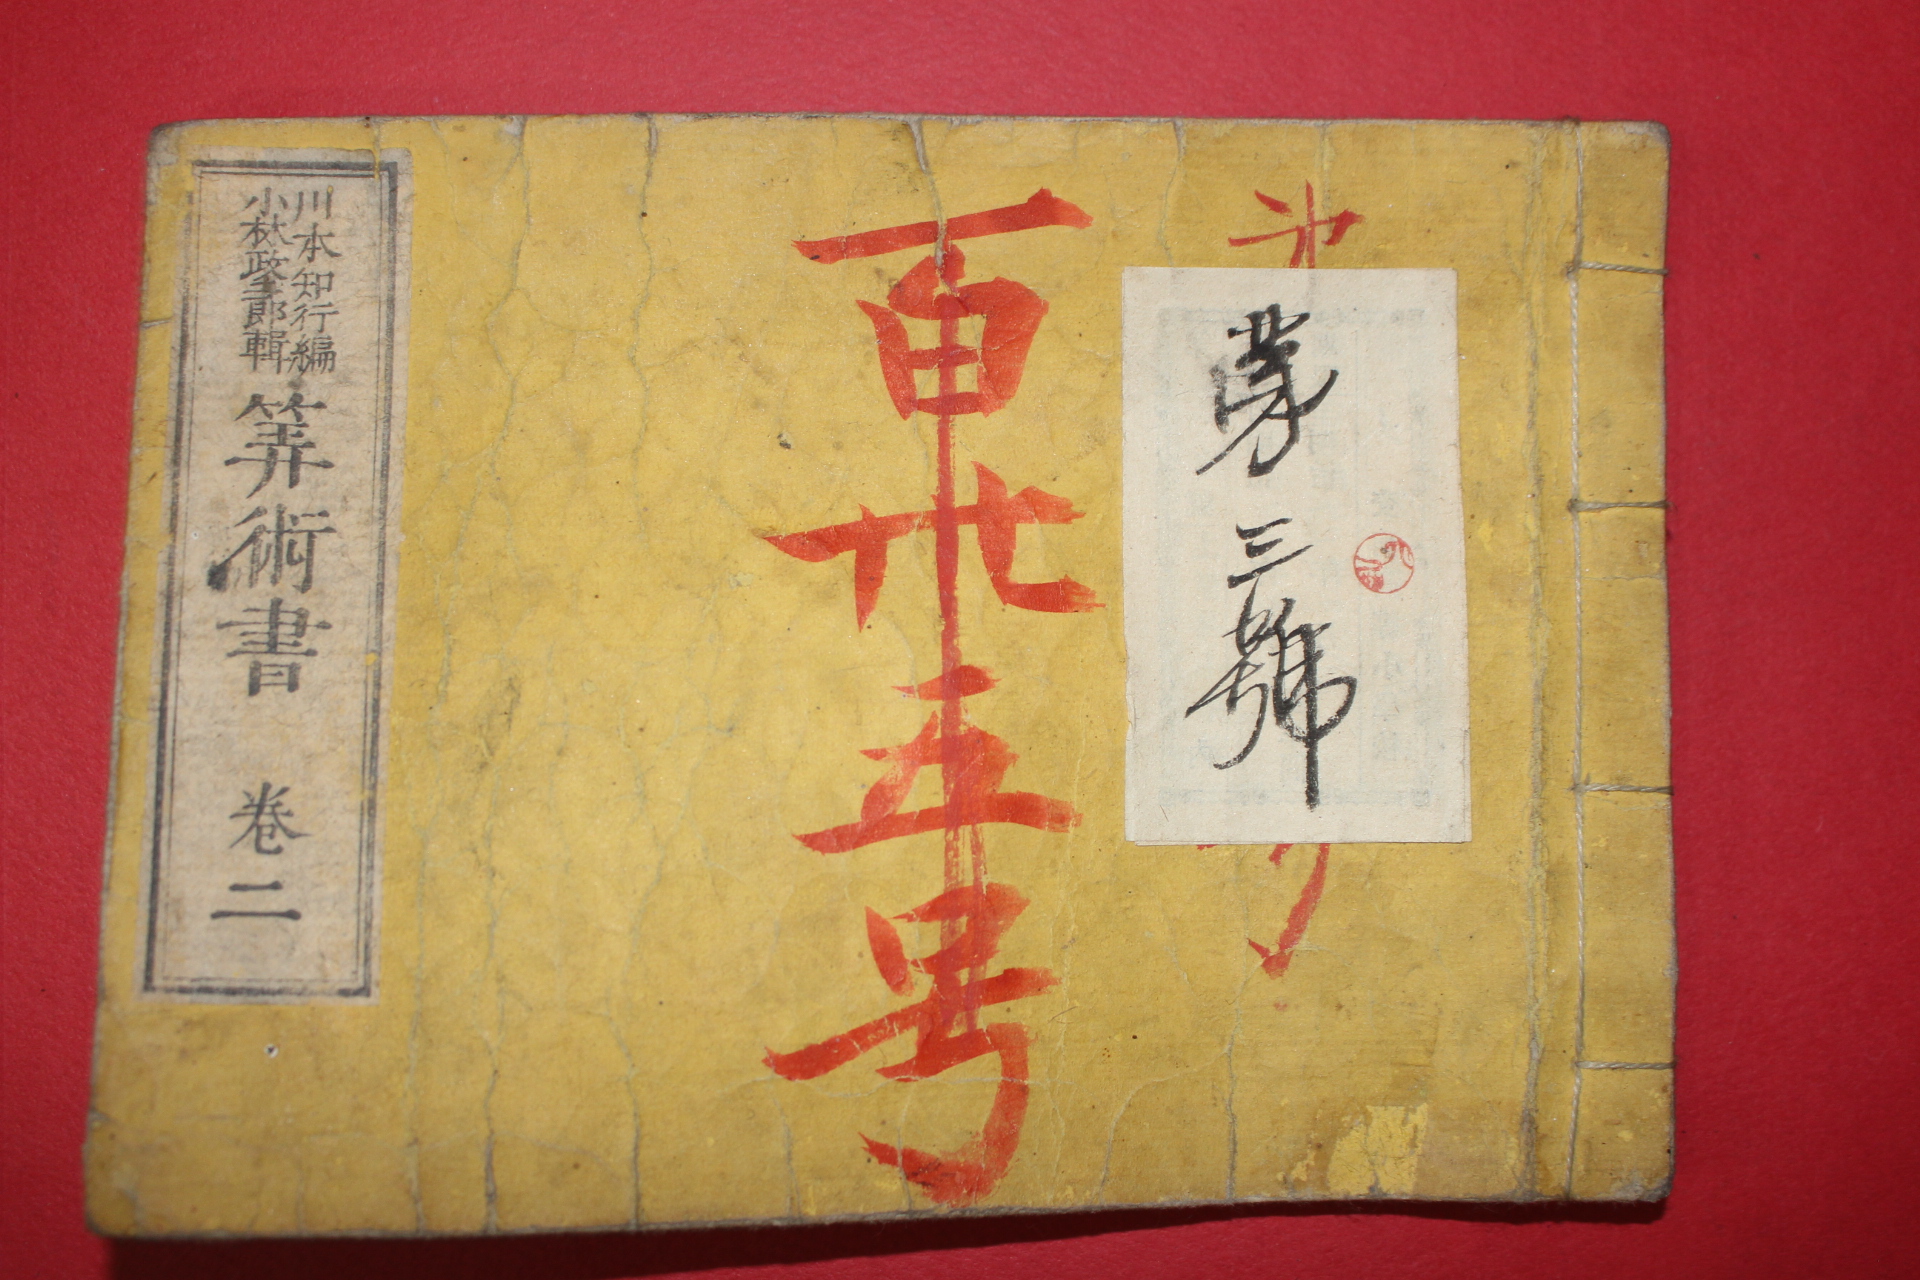 第三號
百廿五号
川本知行編
小林政三郎輯
筭術書 巻二